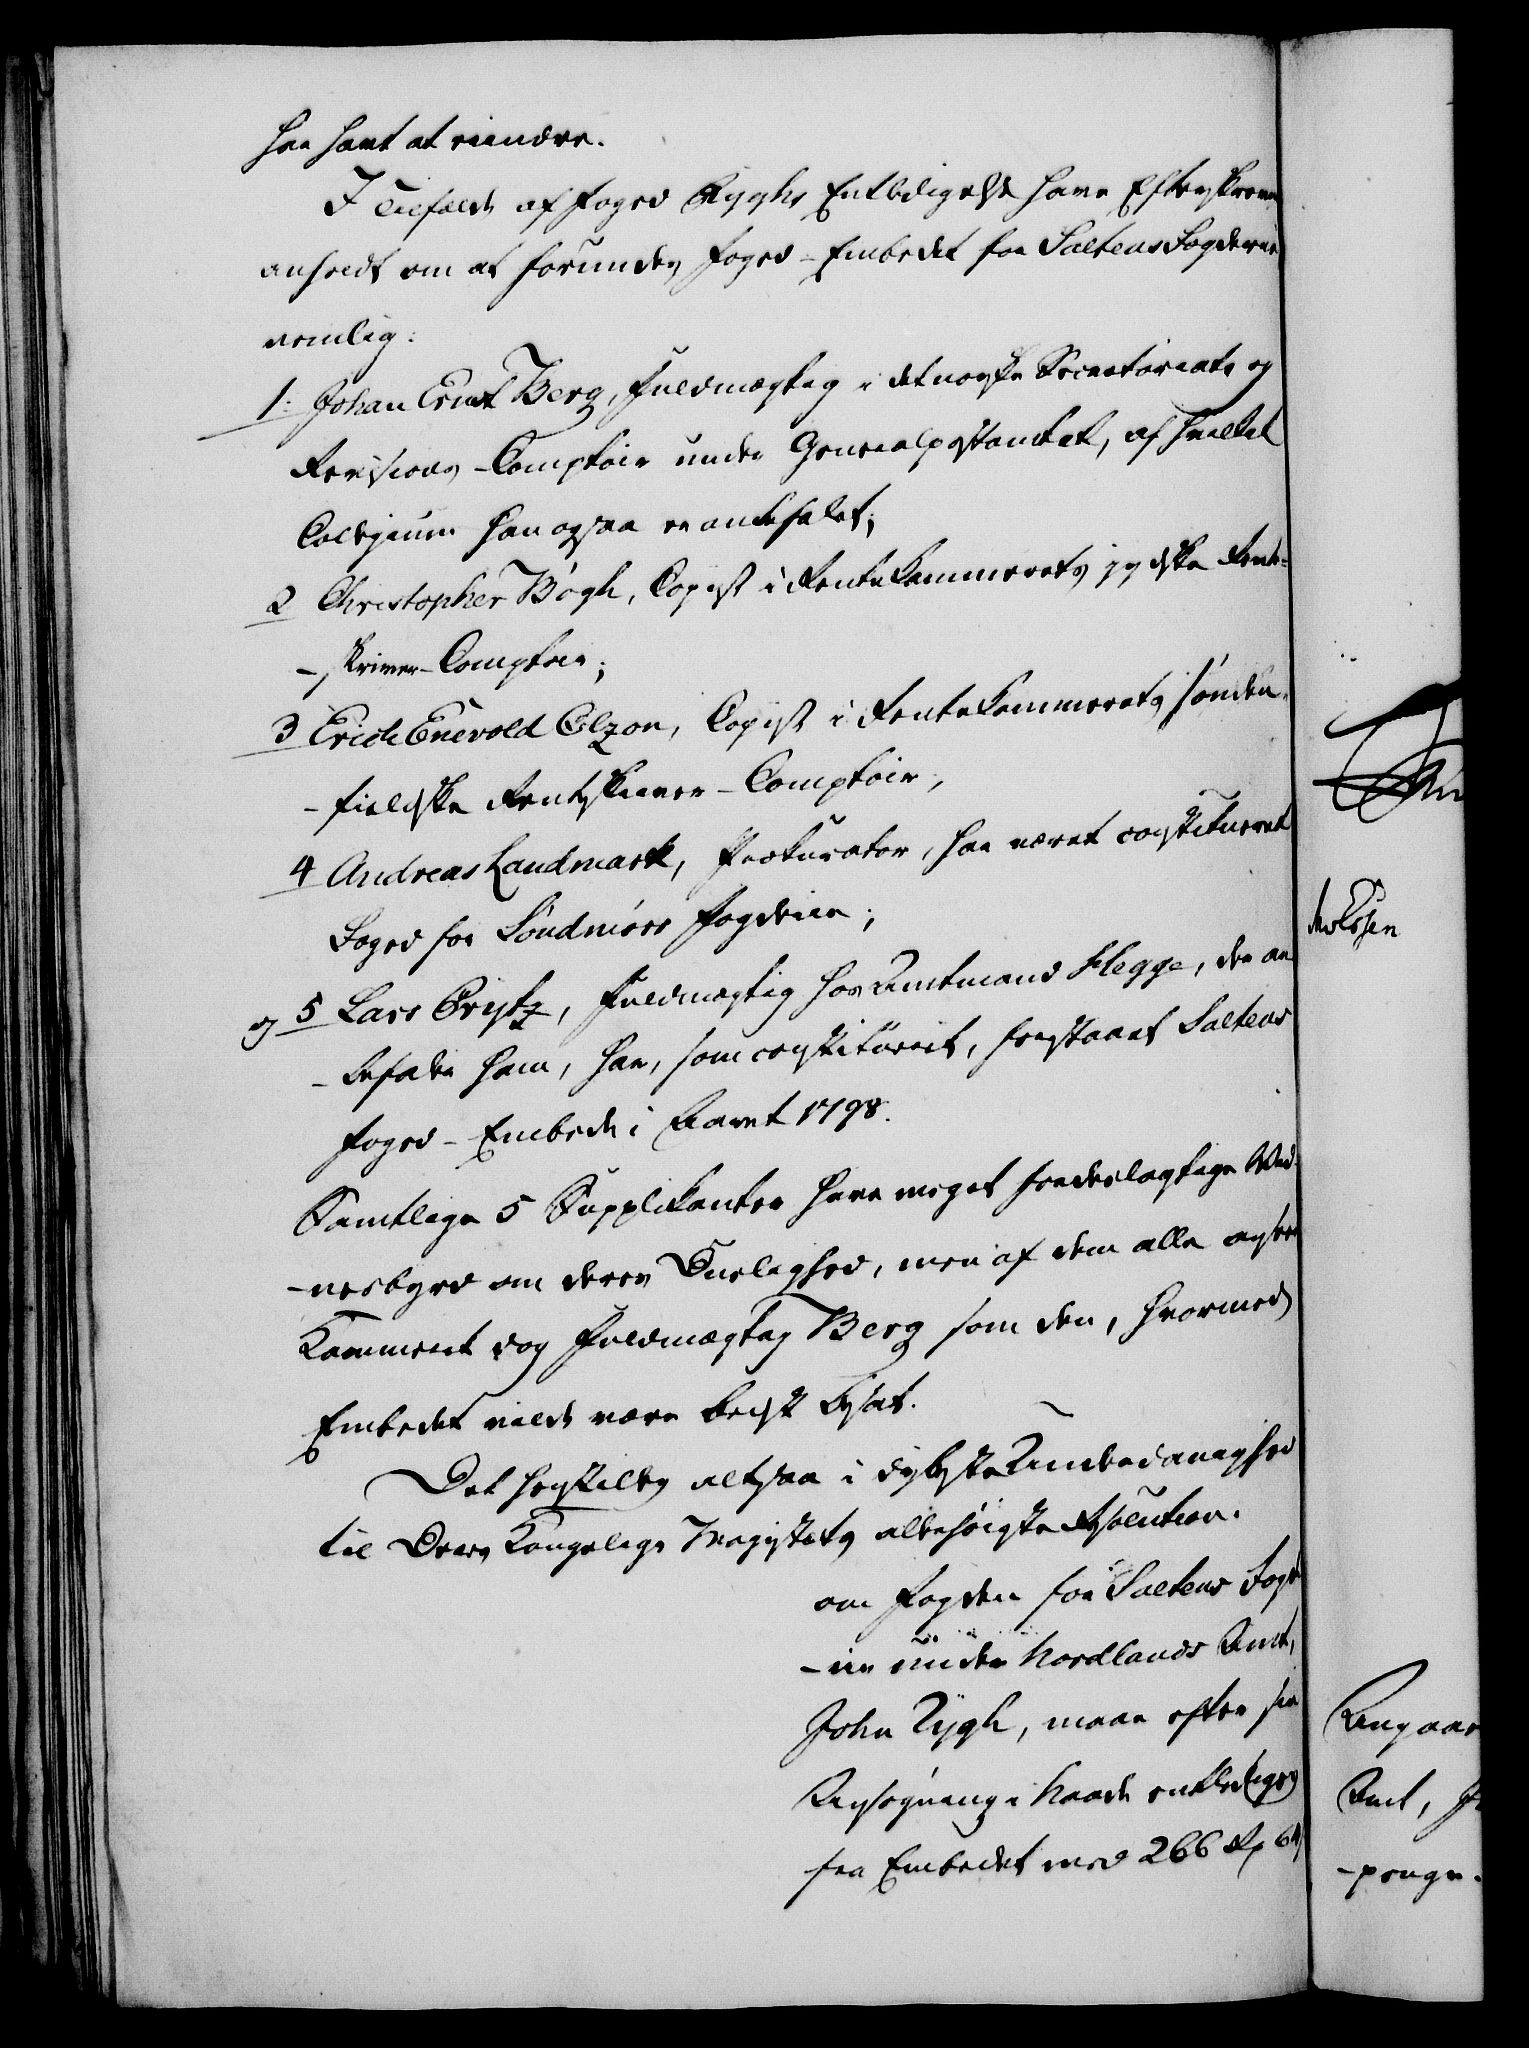 har havt at erindre.
I Tilfælde af Foged Ryghs Entledigelse have Efterskrevne
anholdt om at forundes Foged-Embedet for Saltens Fogderie
nemlig:
1: Johan Ernst Berg, Fuldmægtig i det norske Secretariats og
Revisions-Comptoir under Generalpostamtet, af hvilket
Collegium han ogsaa er anbefalet;
2 Christopher Bøgh, Copist i Rentekammerets jydske Rente-
-skriver-Comptoir;
3 Erich Enevold Olzon, Copist i Rentekammerets sønden-
-fieldske Renteskriver-Comptoir,
4 Andreas Landmark, Prokurator, har været constitueret
Foged for Søndmørs Fogderie;
og 5 Lars Cristz, Fuldmægtig hos Amtmand Hegge, der an
-befaler ham, har, som constitueret, forestaaet Saltens
Foged-Embede i Aaret 1798.
Samtlige 5 Supplikanter have meget fordeelagtige Vid-
-nesbyrd om deres Duelighed, men af dem alle ansees
Kammeret dog Fuldmægtig Berg som den, hvormed
Embedet vilde være bedst besat.
Det henstilles altsaa i dybeste Underdanighed
til Deres Kongelige Majestets allerhøieste Resolution.
om Fogden for Saltens Fogde
-rie under Nordlands Amt,
John Rygh, maae efter sin
Ansøgning i Naade entlediges
fra Embedet med 266 Rd 64
Angaae
Amt,
-penge.